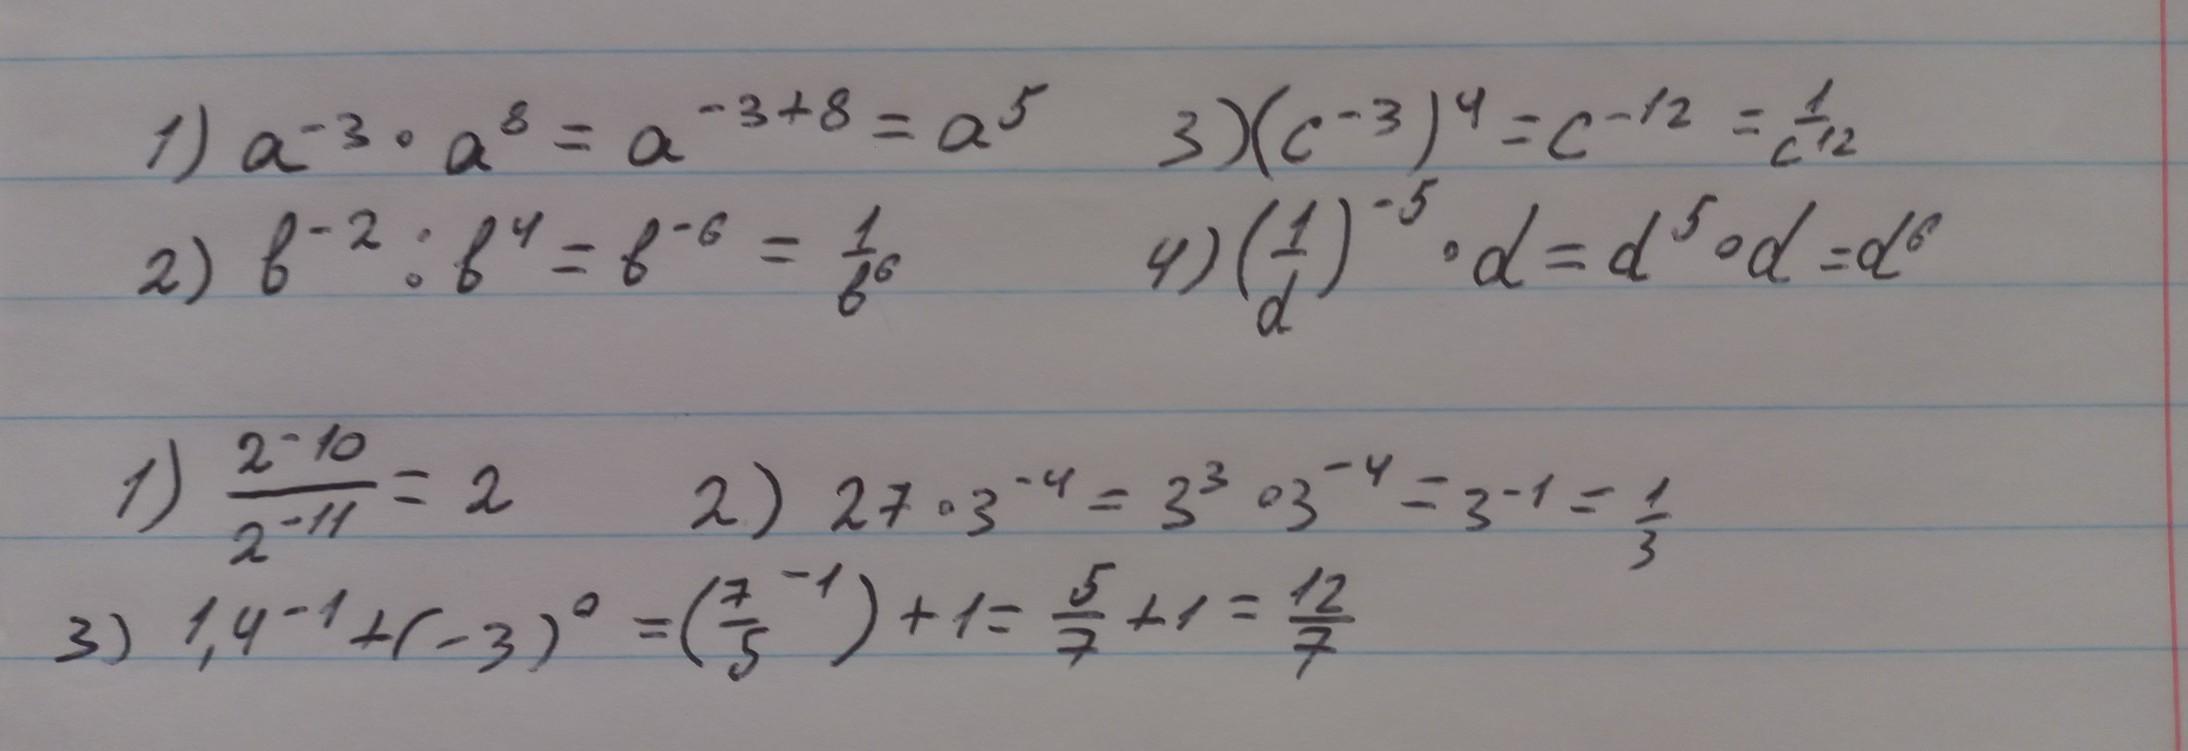 1) a⁻³ · a⁸ = a⁻³⁺⁸ = a⁵ 3) (c⁻³)⁴ = c⁻¹² = 1/c¹²
2) b⁻² : b⁴ = b⁻⁶ = 1/b⁶ 4) (1/d)⁻⁵ · d = d⁵ · d = d⁶
1) 2⁻¹⁰/2⁻¹¹ = 2 2) 27 · 3⁻⁴ = 3³ · 3⁻⁴ = 3⁻¹ = 1/3
3) 1,4⁻¹ + (-3)⁰ = (7/5⁻¹) + 1 = 5/7 + 1 = 12/7